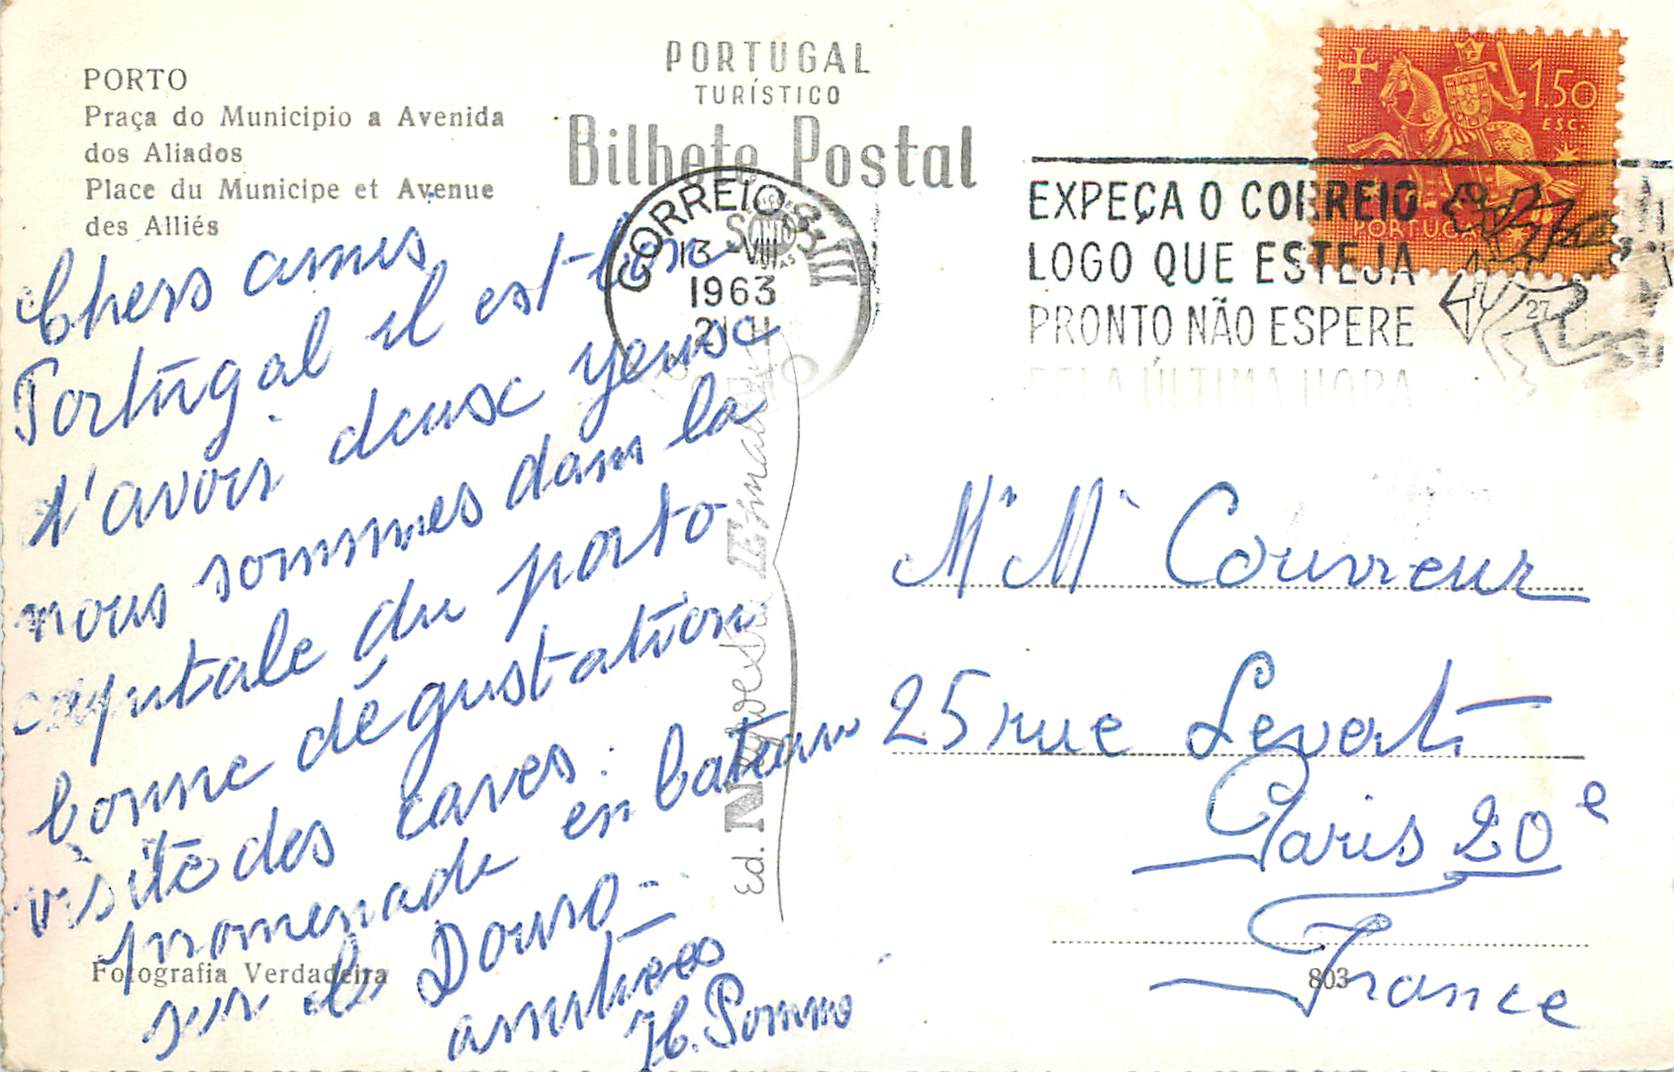 PORTO
Praça do Municipio a Avenida
dos Aliados
Place du Municipe et Avenue
des Alliés
PORTUGAL
TURÍSTICO
Bilhete Postal
CORREIOS
13-VIII
1963
21H
1$50
ESC.
PORTUGAL
EXPEÇA O CORREIO
LOGO QUE ESTEJA
PRONTO NÃO ESPERE
PELA ÚLTIMA HORA
27
Chers amis
Portugal il est bon
d'avoir deux yeux
nous sommes dans la
capitale du porto
bonne dégustation
visite des caves.
promenade en bateau
sur le Douro
amitiées
Ed.
Mr Me Couvreur
25 rue Levert
Paris 20e
France
Fotografia Verdadeira
803